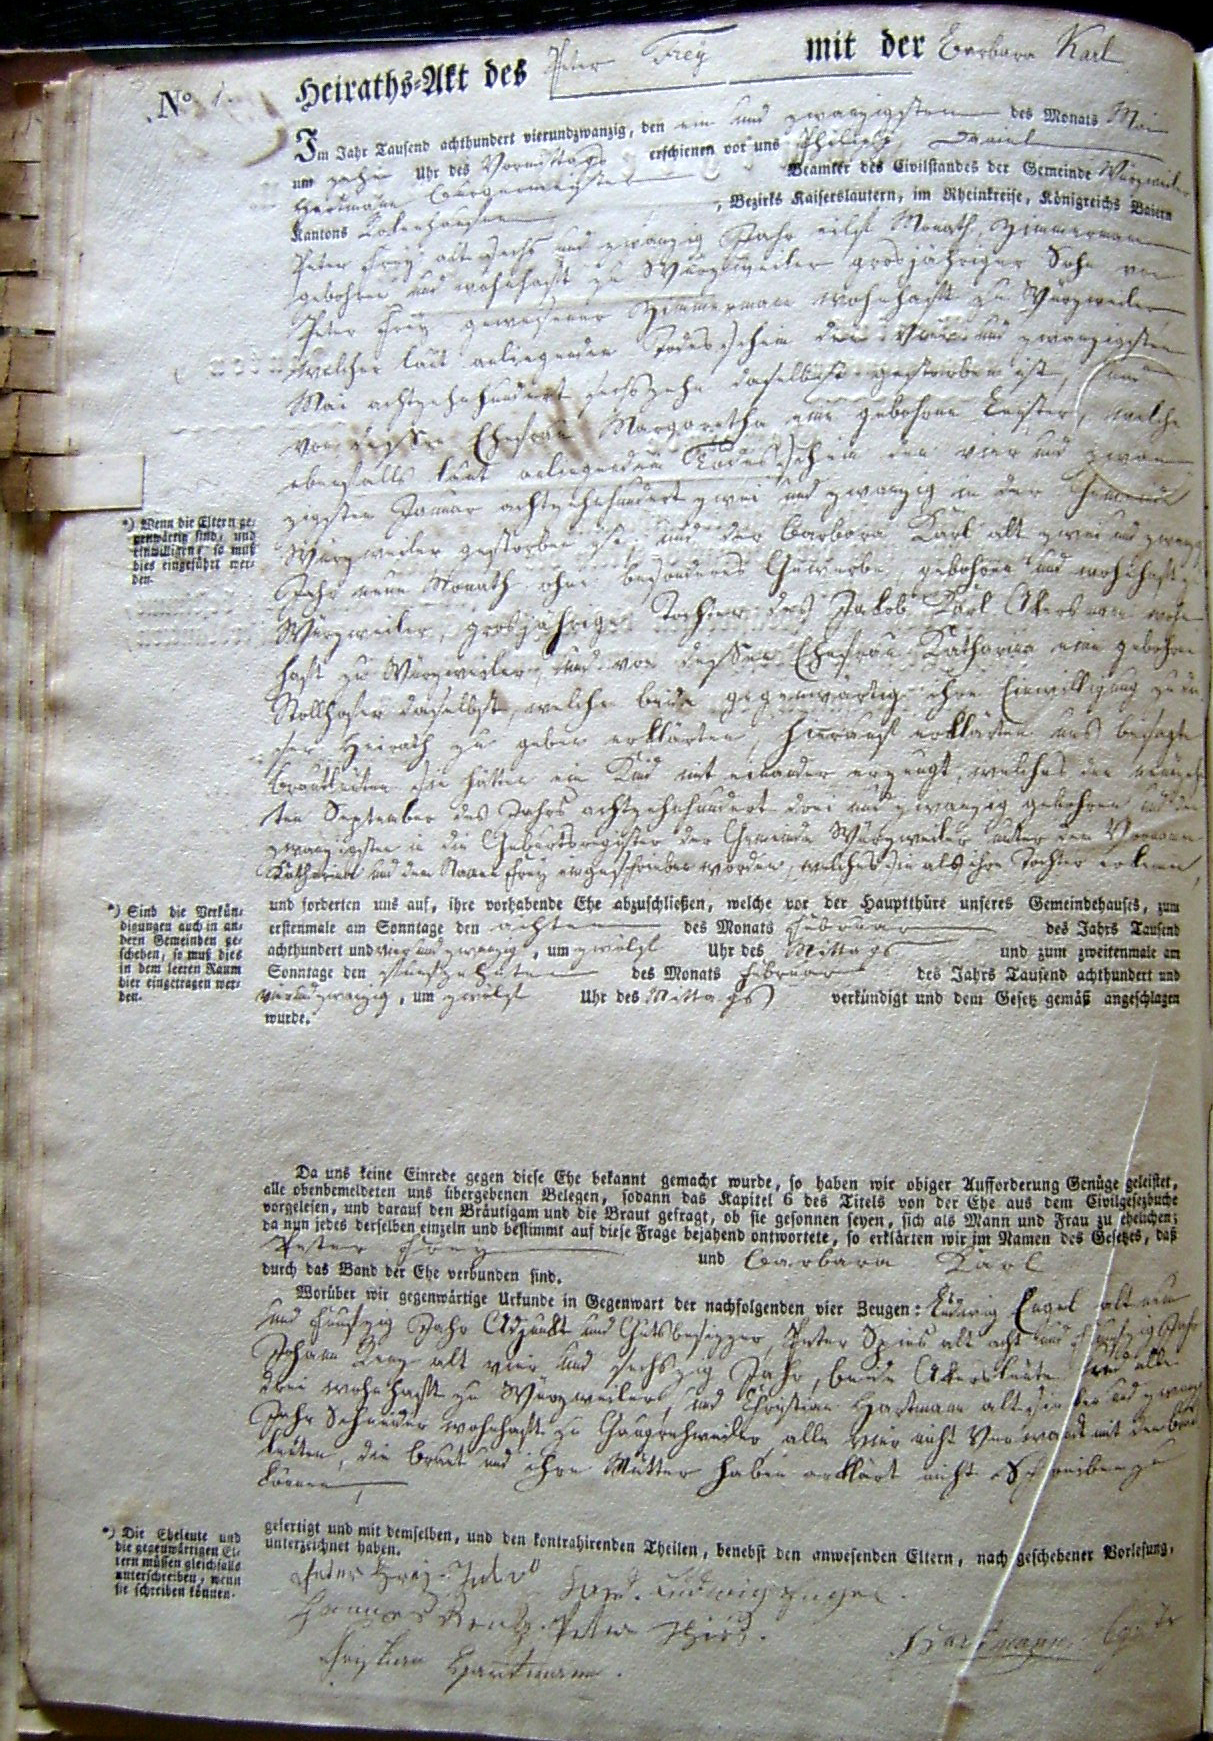 No 1.
Heiraths-Akt des Peter Frey mit der Barbara Karl
Im Jahr Tausend achthundert vierundzwanzig, den ein und zwanzigsten des Monats Mai
um zehn Uhr des Vormittags erschienen vor uns Philipp Daniel
Hartmann Bürgermeister Beamter des Civilstandes der Gemeinde Würzweiler
Kantons Rokenhausen, Bezirks Kaiserslautern, im Rheinkreise, Königreichs Baiern
Peter Frey alt sechs und zwanzig Jahr eilf Monath, Zimmermann
gebohren und wohnhaft zu Würzweiler grosjähriger Sohn von
Peter Frey gewesener Zimmermann wohnhaft zu Würzweiler
welcher laut anliegenden Todesschein den und zwanzigsten
Mai achtzehnhundert sechszehn daselbst gestorben ist, und
von dessen Ehefrau Margaretha eine gebohrne Leister, welche
ebenfalls laut anliegendem Todesschein den vier und zwan
zigsten Januar achtzehnhundert zwei und zwanzig in der Gemeinde
Würzweiler gestorben ist. und der Barbara Karl alt zwei und zwanzig
Jahr neun Monath ohne besonderes Gewerbe, gebohren und wohnhaft zu
Würzweiler, grosjährige Tochter des Jakob Karl Akersmann wohn
haft zu Würzweiler, und von dessen Ehefrau Katharina eine gebohrne
Stollhofer daselbst, welche beide gegenwärtig ihre Einwilligung zu die
ser Heirath zu geben erklärten, hierauf erklärten uns besagte
Brautleuten sie hätten ein Kind mit einander erzeugt, welches den
ten September des Jahrs achtzehnhundert drei und zwanzig gebohren und den
zwanzigsten in die Geburtsregister der Gemeinde Würzweiler unter dem Vornamen
Katharina und dem Namen Frey eingeschrieben worden, welches sie als ihre Tochter erkennen,
*) Wenn die Eltern ge-
genwärtig sind, und
einwilligen, so muß
dies eingeführt wer-
den.
und forderten uns auf, ihre vorhabende Ehe abzuschließen, welche vor der Hauptthüre unseres Gemeindehauses, zum
erstenmale am Sonntage den achten des Monats Februar des Jahrs Tausend
achthundert und vier und zwanzig, um zwölf Uhr des Mittags und zum zweitenmale am
Sonntage den fünfzehnten des Monats Februar des Jahrs Tausend achthundert und
vierundzwanzig, um zwölf Uhr des Mittags verkündigt und dem Gesetz gemäß angeschlagen
wurde.
*) Sind die Verkün-
digungen auch in an-
dern Gemeinden ge-
schehen, so muß dies
in dem leeren Raum
hier eingetragen wer-
den.
Da uns keine Einrede gegen diese Ehe bekannt gemacht wurde, so haben wir obiger Aufforderung Genüge geleistet,
alle obenbemeldeten uns übergebenen Belegen, sodann das Kapitel 6 des Titels von der Ehe aus dem Civilgesetzbuche
vorgelesen, und darauf den Bräutigam und die Braut gefragt, ob sie gesonnen seyen, sich als Mann und Frau zu ehelichen;
da nun jedes derselben einzeln und bestimmt auf diese Frage bejahend antwortete, so erklärten wir im Namen des Gesetzes, daß
Peter Frey und Barbara Karl
durch das Band der Ehe verbunden sind.
Worüber wir gegenwärtige Urkunde in Gegenwart der nachfolgenden vier Zeugen: Ludwig Engel alt
und fünfzig Jahr Adjunkt und Gutsbesizzer, Peter Spies alt acht und fünfzig Jahr
Johann Renz alt vier und sechszig Jahr, beide Akersleute und alle
drei wohnhaft zu Würzweiler, und Christian Hartmann alt sieben und zwanzig
Jahr Schneider wohnhaft zu Gaugrehweiler, alle vier nicht Verwandt mit den Braut
leuten, die Braut und ihre Mutter haben erklärt nicht Schreiben zu
können,
gefertigt und mit demselben, und den kontrahirenden Theilen, benebst den anwesenden Eltern, nach geschehener Vorlesung,
unterzeichnet haben.
*) Die Eheleute und
die gegenwärtigen El-
tern müßen gleichfalls
unterschreiben, wenn
sie schreiben können.
Peter Frey Ludwig Engel
Hannes Rentz Peter Spies
Christian Hartmann Hartmann